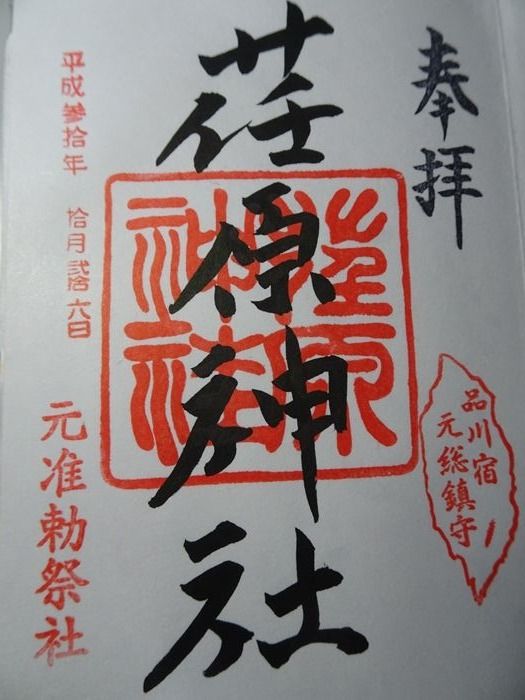 奉拝
品川宿
元総鎮守
荏原神社
荏原
神社
平成参拾年 拾月弐拾六日
元准勅祭社